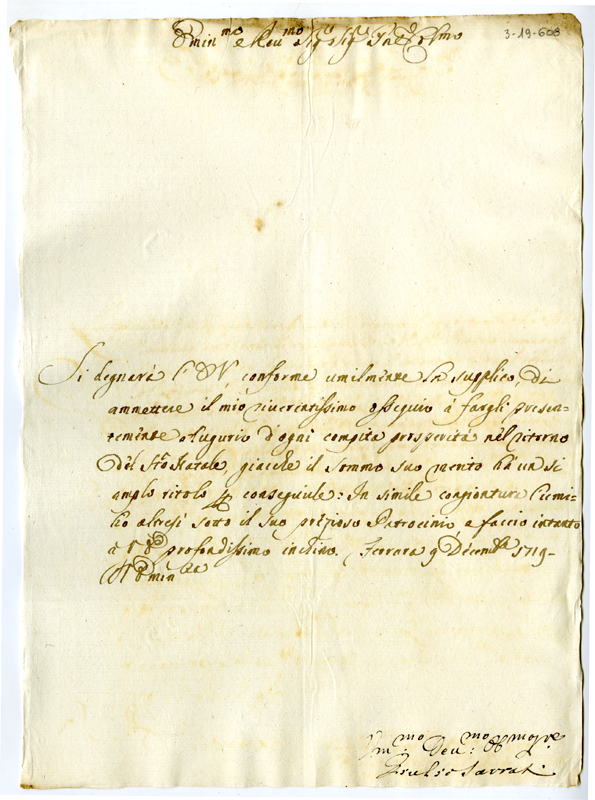 Emin.mo e Reu.mo Sig.r Sig.r Pne Col.mo
3-19-608
Si degnarà l'E V. conforme umilmente la supplico, di
ammettere il mio riverentissimo ossequio à fargli presen-
temente Augurio d'ogni compita prosperità nel ritorno
del Sto Natale, giacche il sommo suo merito hà un si
amplo titolo p conseguirle: In simile congiontura l'umi-
lio altresi sotto il suo prezioso Patrocinio, e faccio intanto
à V E profondissimo inchino. Ferrara 9 Decembre 1719-
Di V Emin.za
Um.mo Deu.mo
Giulio